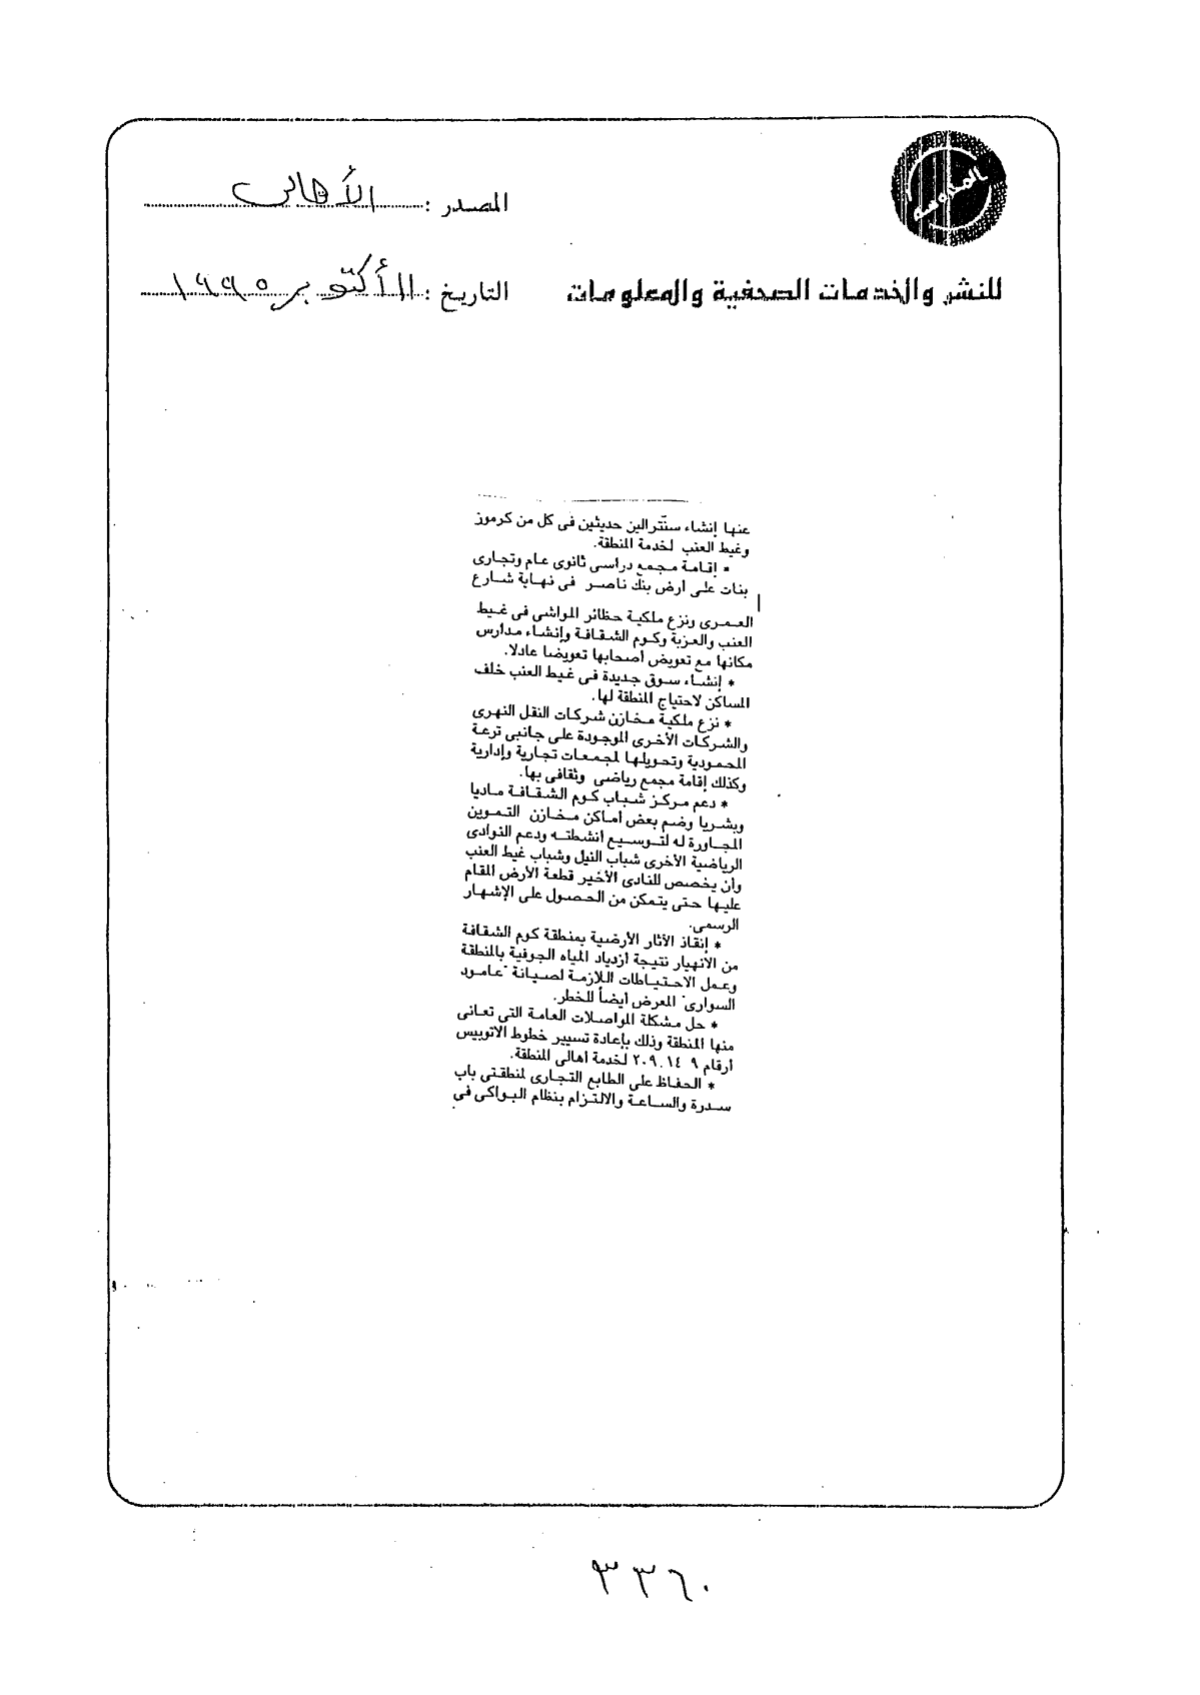 المصدر : الأهالى
للنشر والخدمات الصحفية والمعلومات
التاريخ : ١١ أكتوبر ١٩٩٥
عنها إنشاء سنترالين حديثين فى كل من كرموز
وغيط العنب لخدمة المنطقة.
* إقامة مجمع دراسى ثانوى عام وتجارى
بنات على ارض بنك ناصر فى نهاية شارع
العمرى ونزع ملكية حظائر المواشى فى غيط
العنب والعزبة وكوم الشقافة وإنشاء مدارس
مكانها مع تعويض أصحابها تعويضا عادلا.
* إنشاء سوق جديدة فى غيط العنب خلف
المساكن لاحتياج المنطقة لها.
* نزع ملكية مخازن شركات النقل النهرى
والشركات الأخرى الموجودة على جانبى ترعة
المحمودية وتحويلها لمجمعات تجارية وإدارية
وكذلك إقامة مجمع رياضى وثقافى بها.
* دعم مركز شباب كوم الشقافة ماديا
وبشريا وضم بعض أماكن مخازن التموين
المجاورة له لتوسيع أنشطته ودعم النوادى
الرياضية الأخرى شباب النيل وشباب غيط العنب
وأن يخصص للنادى الأخير قطعة الأرض المقام
عليها حتى يتمكن من الحصول على الإشهار
الرسمى.
* إنقاذ الآثار الأرضية بمنطقة كوم الشقافة
من الانهيار نتيجة ازدياد المياه الجوفية بالمنطقة
وعمل الاحتياطات اللازمة لصيانة "عامود
السوارى" المعرض أيضاً للخطر.
* حل مشكلة المواصلات العامة التى تعانى
منها المنطقة وذلك بإعادة تسيير خطوط الاتوبيس
أرقام ٩ ١٤، ٢٠٩ لخدمة أهالى المنطقة.
* الحفاظ على الطابع التجارى لمنطقتى باب
سدرة والساعة والالتزام بنظام البواكى فى
٣٣٦٠